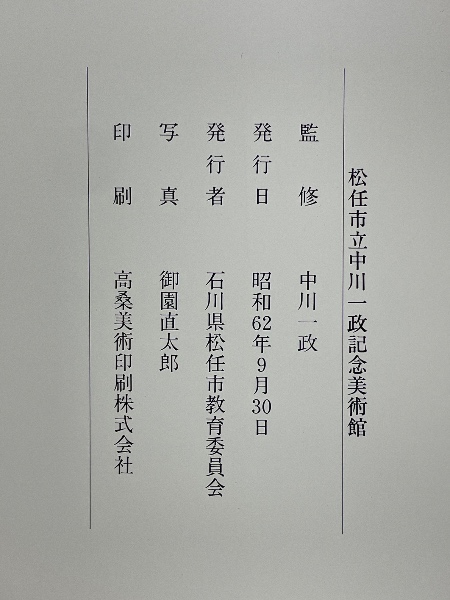 松任市立中川一政記念美術館
監修 中川一政
発行日 昭和62年9月30日
発行者 石川県松任市教育委員会
写真 御園直太郎
印刷 高桑美術印刷株式会社